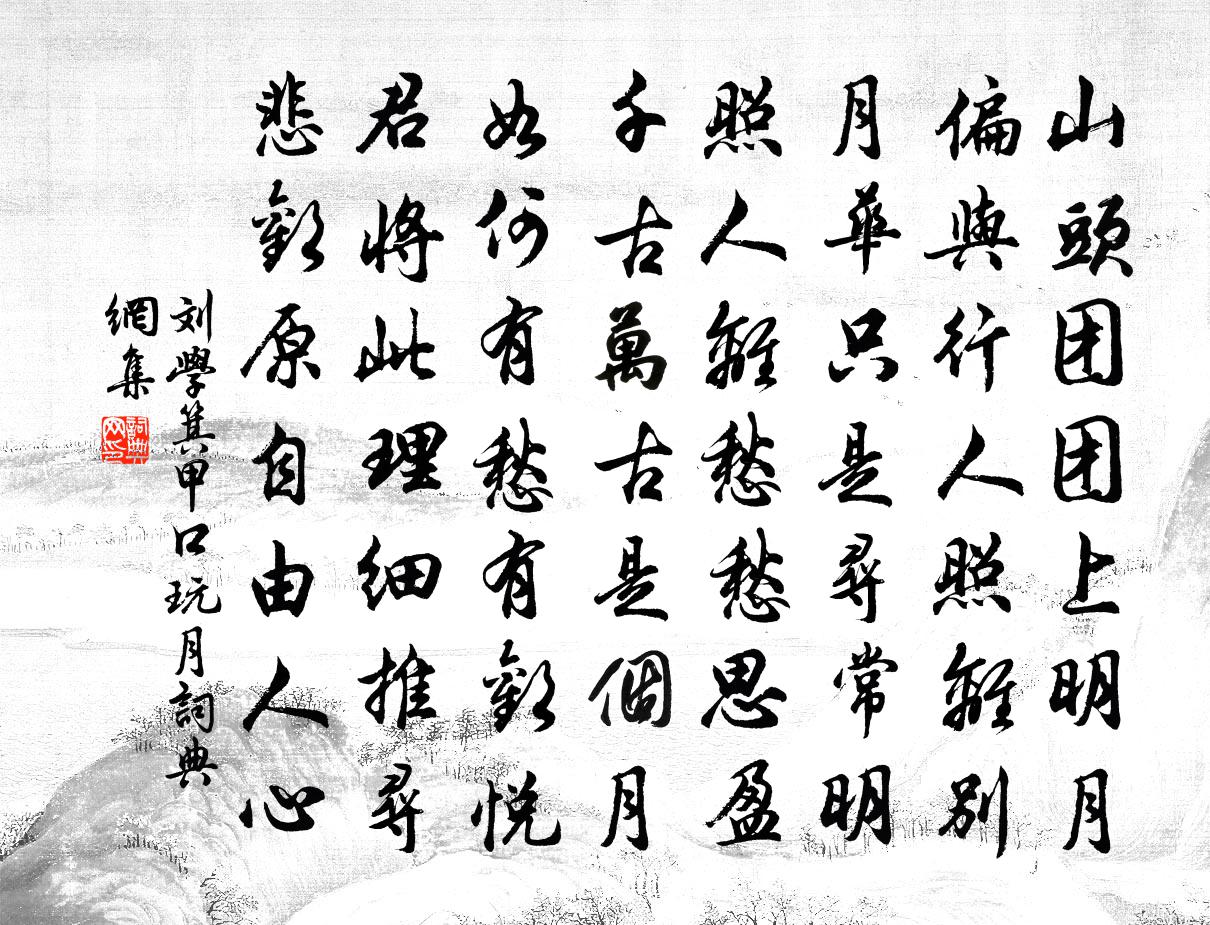 山頭团团上明月
偏與行人照離別
月華只是尋常明
照人離愁愁思盈
千古萬古是個月
如何有愁有歡悅
君將此理細推尋
悲歡原自由人心
刘學箕甲口玩月詞典
網集
詞典網印